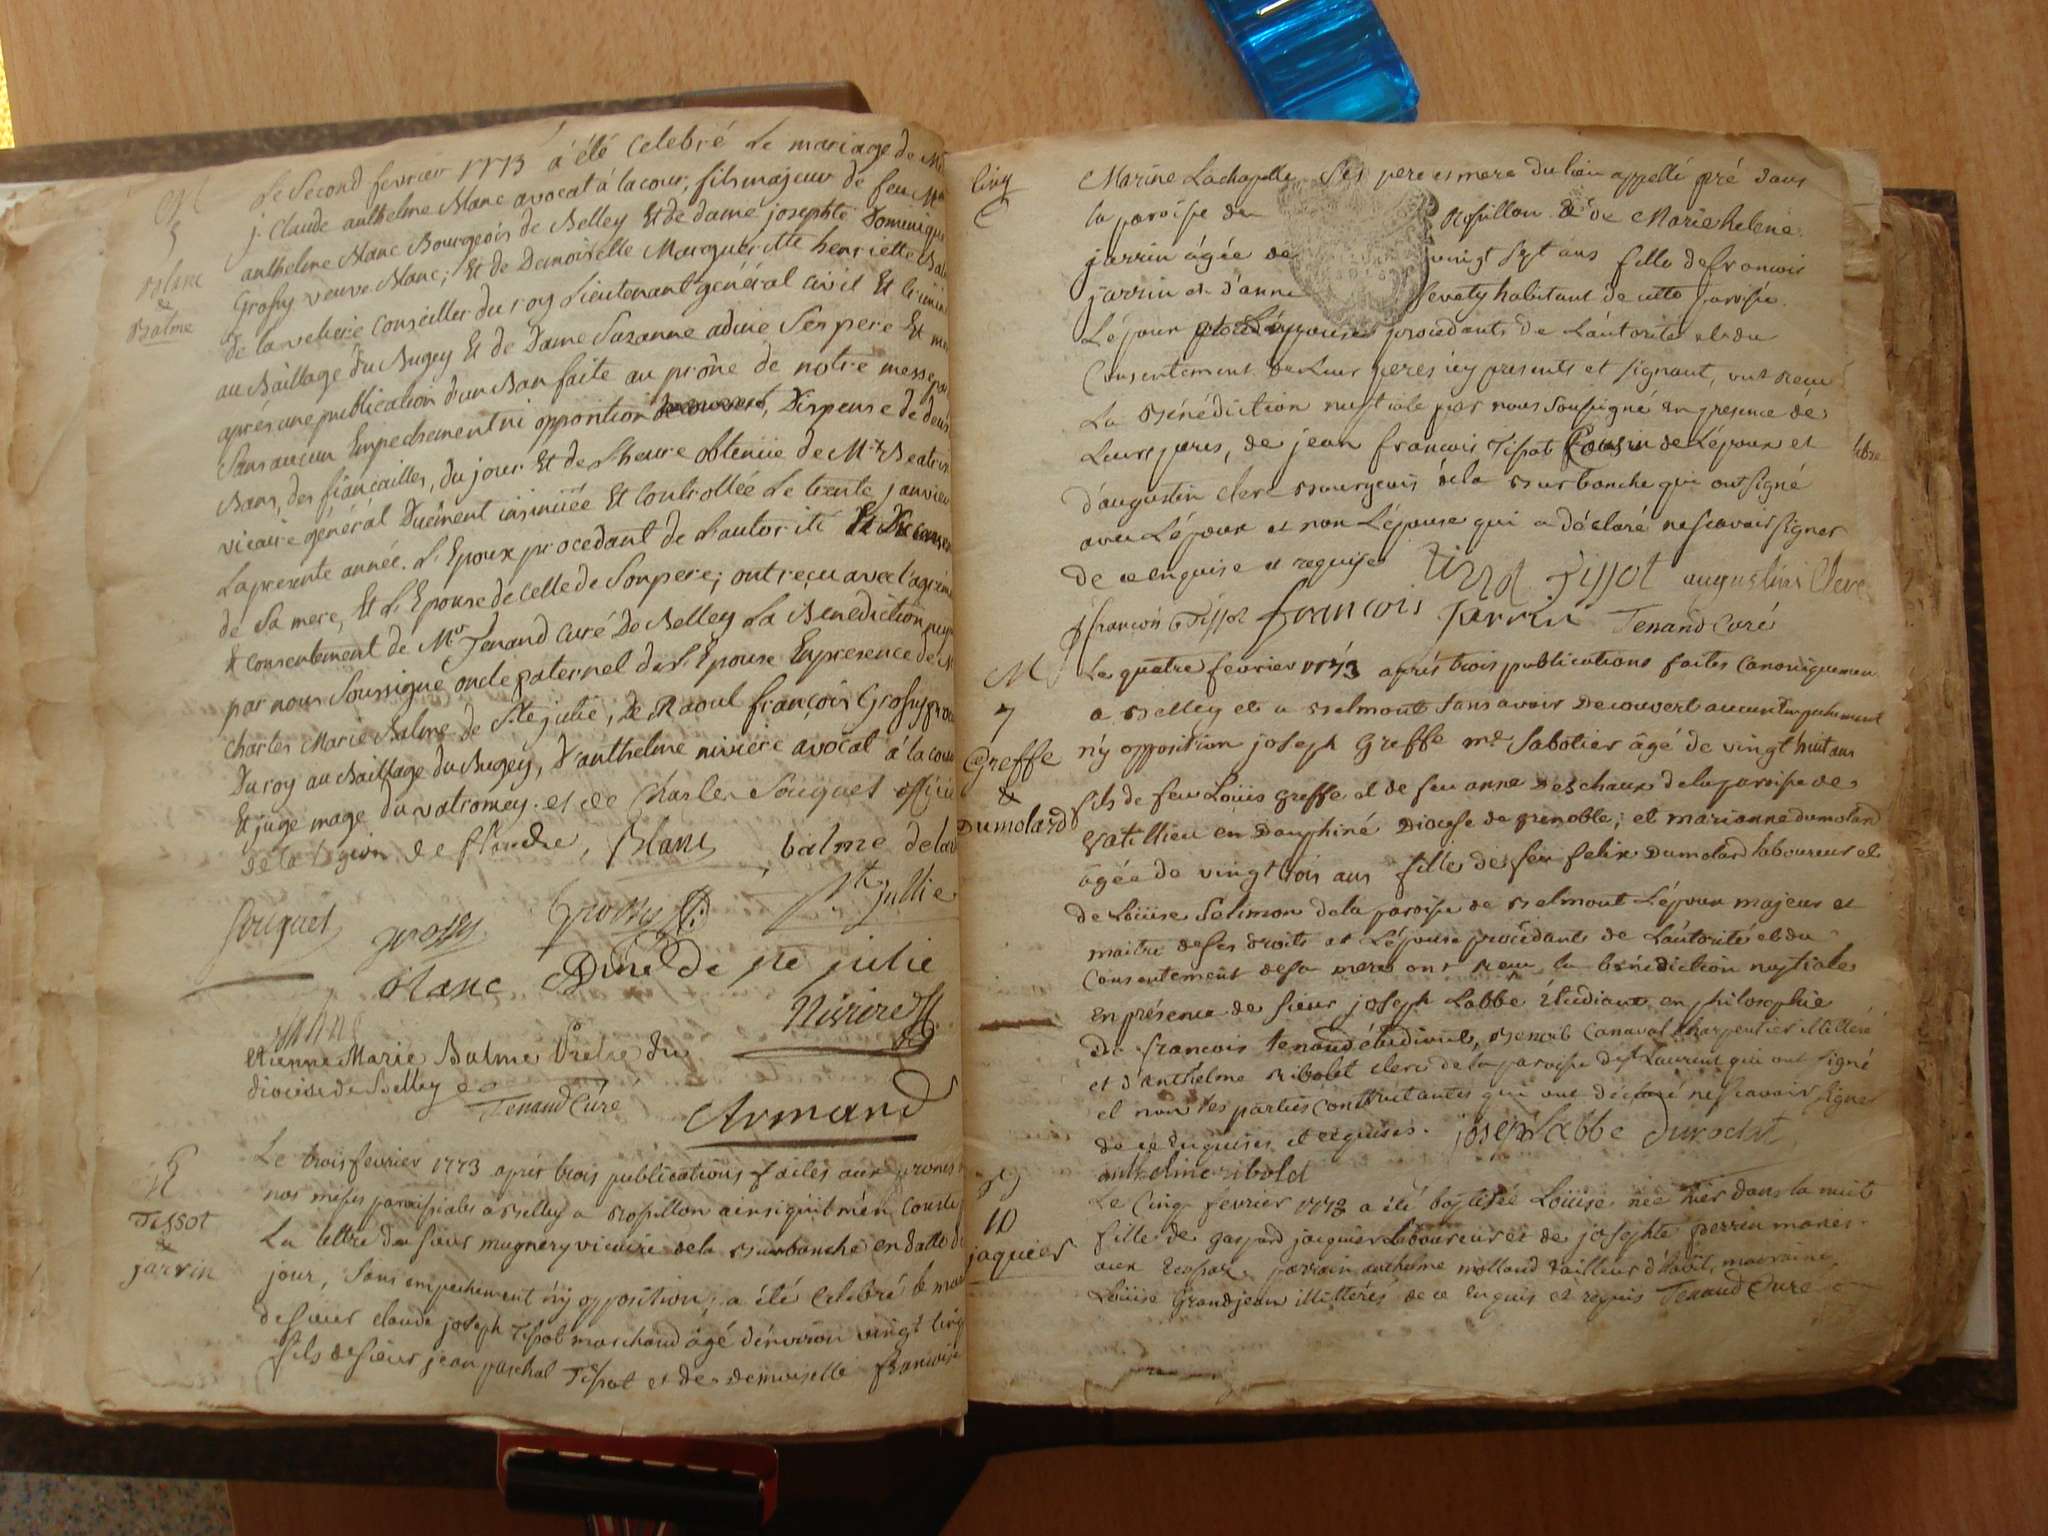 M
5
Blanc
&
Balme
Le Second fevrier 1773 a été Celebré Le mariage de
j. Claude anthelme Blanc avocat à la cour, fils majeur de feu
anthelme Blanc Bourgeois de Belley Et de dame josephte Dominique
Grossy veuve Blanc; Et de Demoiselle Margueritte henriette
de la velière Conseiller du roy Lieutenant général civil Et
au Bailliage du Bugey Et de Dame Suzanne adine Ses pere Et
après une publication d'un Ban faite au prône de notre messe
Sans aucun Empechement ni opposition Dispense de deux
Bans, des fiancailles, du jour Et de l'heure obtenüe de Mr
vicaire général Duëment insinüée Et Controllée Le trente janvier
La presente année. L'Epoux procedant de l'autorité Et Du
de Sa mere, Et L'Epouse de celle de Son pere; ont reçu avec l'agrément
& consentement de Mr Tenand Curé De Belley La Benediction
par nous Soussigné oncle paternel de L'Epouse En presence de
Charles Marie Balme de Ste julie, de Raoul françois Grossy
Du roy au Bailliage du Bugey, D'anthelme rivière avocat à la cour
Et juge mage du valromey. et de Charles Souquet
De la Legion de flandre, Blanc balme
Souquet grossy Grossy St jullie
Blanc Dine de ste julie
Riviere
Etienne Marie Balme Prêtre du
diocèse de Belley
Tenand Curé Armand
Tissot
&
jarrin
Le trois fevrier 1773 aprés trois publications faites aux prones
nos messes paroissiales a Belley a Rossillon ainsi qu'il m'en Conste
La lettre du sieur mugnery vicaire de la Burbanche en datte
jour, Sans empechement n'y opposition, a été Celebré le
de sieur claude joseph Tissot marchand âgé d'environ vingt cinq
fils de sieur jean paschal Tissot et de demoiselle francoise
Cinq
Marine Lachapelle Ses pere et mere du lieu appellé pré dans
la paroisse de Rossillon & de Marie helene
jarrin âgée de vingt sept ans fille de francois
jarrin et d'anne habitant de cette paroisse
L'époux procedants de L'autorité et du
Consentement de Leur peres icy presents et signant, ont recu
La Bénédiction nuptiale par nous Soussigné en presence de
Leurs peres, de jean francois Tissot Cousin de L'époux et
d'augustin clerc Bourgeois de la Burbanche qui ont signé
avec L'époux et non L'épouse qui a déclaré ne scavoir signer
de ce enquise et requise Tissot Tissot augustin Clerc
françois Tissot françois jarrin Tenand Curé
M
7
Greffe
&
Dumolard
Le quatre fevrier 1773 aprés trois publications faites Canoniquement
a Belley et a Belmont Sans avoir Decouvert aucun Empechement
n'y opposition joseph Greffe me Sabotier âgé de vingt huit ans
fils de feu Loüis Greffe et de feu anne Deschaux de la paroisse de
en Dauphiné Diocese de grenoble; et marianne dumolard
âgée de vingt trois ans fille de feu felix Dumolard laboureur et
de Loüise Selimon de la paroisse de Belmont L'époux majeur et
maitre de ses droits et L'épouse procédante de L'autorité et du
Consentement de sa mere ont recu la bénédiction nuptiales
En présence de sieur joseph Labbe étudiant en philosophie
De francois tenand étudiant, Benoit Canaval Charpentier illitéré
et d'anthelme Ribolet clerc de la paroisse de St Laurent qui ont signé
et non les parties Contractantes qui ont déclaré ne scavoir signer
de ce enquises et requises. joseph Labbe
anthelme ribolet
10
jaquier
Le Cinq fevrier 1773 a été baptisée Loüise née hier dans la nuit
fille de gaspard jacquier Laboureur et de josephte perrin mariés
parrain anthelme molland tailleur d'habit, marraine
Loüise Grandjean illittérés de ce Enquis et requis Tenand Curé